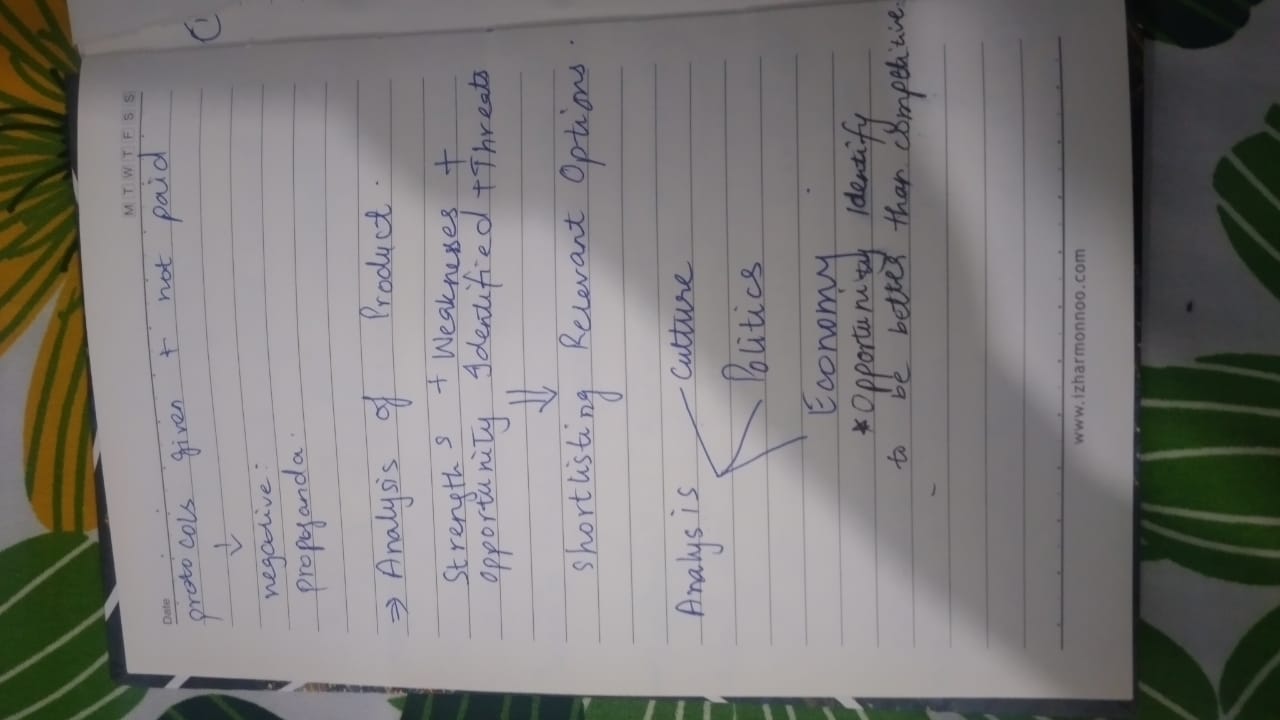 M T W T F S S
Date
protocols given + not paid
↓
negative:
propoganda.
⇒ Analysis of Product.
Strengths + Weaknesses +
opportunity Identified + Threats
⇓
shortlisting Relevant Options.
Analysis
Culture
Politics
Economy
* Opportunity Identify
to be better than competitive.
www.izharmonnoo.com